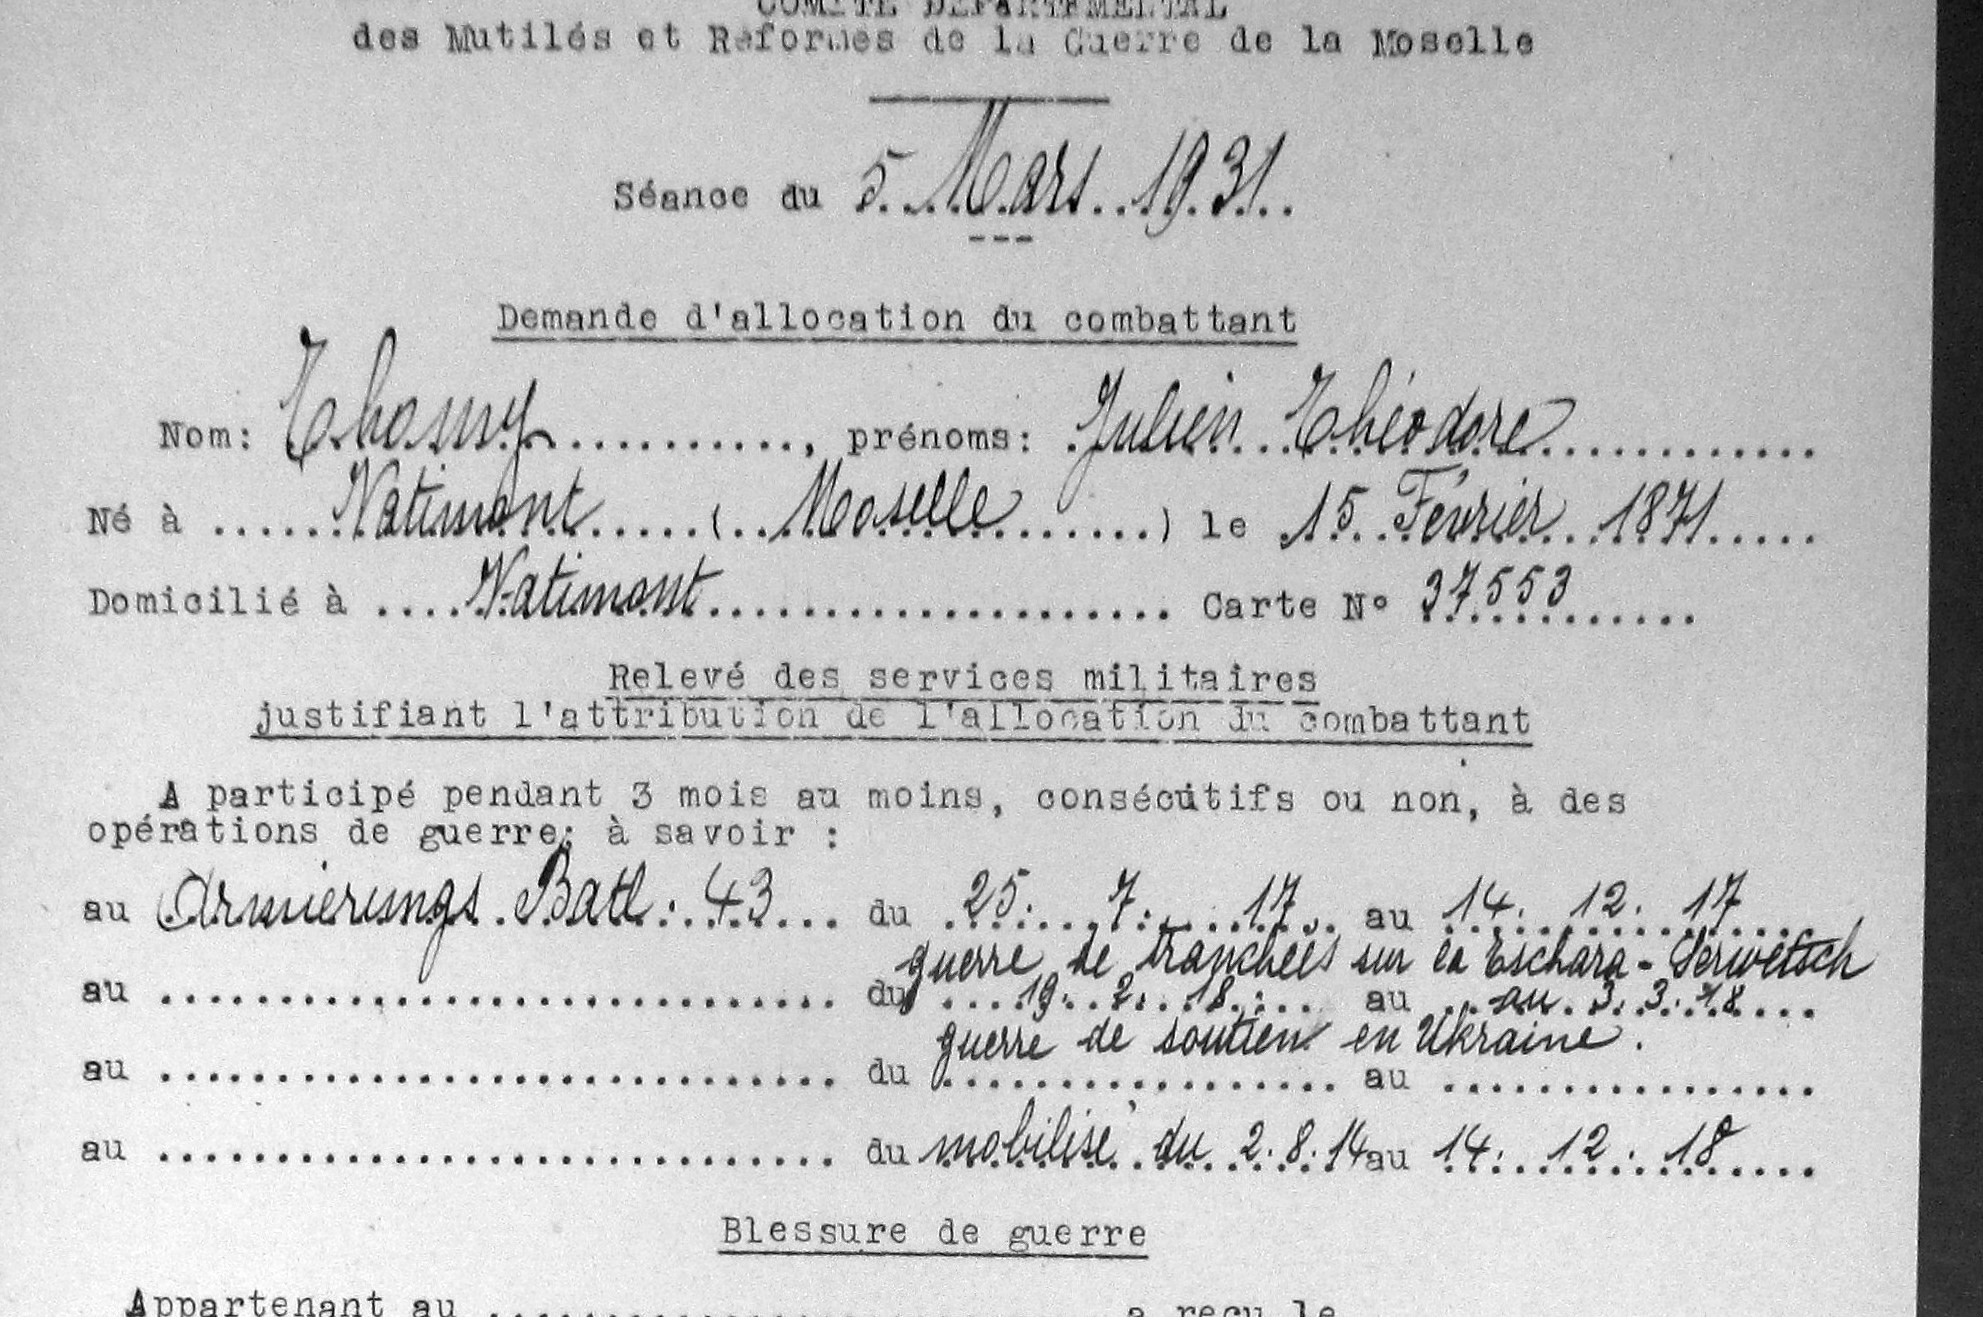 COMITÉ DÉPARTEMENTAL
des Mutilés et Réformés de la Guerre de la Moselle
Séance du 5 Mars 1931.
---
Demande d'allocation du combattant
Nom: Thomy..........., prénoms: Julien Théodore.............
Né à ......Vatimont.....(..Moselle.......) le 15 Février 1871.....
Domicilié à ....Vatimont.................... Carte N° 37553......
Relevé des services militaires
justifiant l'attribution de l'allocation du combattant
A participé pendant 3 mois au moins, consécutifs ou non, à des
opérations de guerre; à savoir :
au Armierungs Batl. 43... du 25. 7. 17.. au 14. 12. 17
guerre de tranchées sur la Eschara - Serwetsch
au .............................. du ...19. 2. 18.... au ..au 3. 3. 18....
guerre de soutien en Ukraine.
au .............................. du ................. au ................
au .............................. du mobilisé du 2.8.14 au 14. 12. 18....
Blessure de guerre
Appartenant au .............................. a reçu le